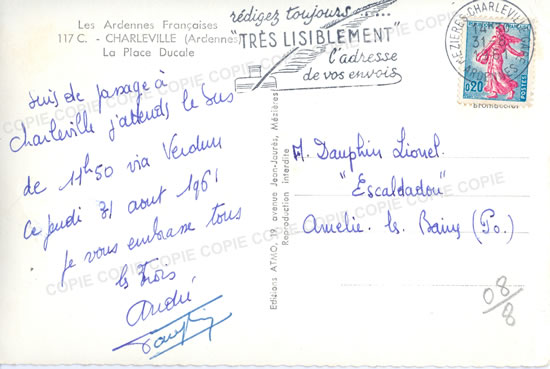 Les Ardennes Françaises
117 C. - CHARLEVILLE (Ardennes)
La Place Ducale
rédigez toujours
"TRÈS LISIBLEMENT"
l'adresse
de vos envois
MÉZIÈRES-CHARLEVILLE
14
31
ARDENNES
0,20
POSTES
suis de passage à
Charleville j'attends le bus
de 11h50 via Verdun
Ce jeudi 31 aout 1961
je vous embrasse tous
les trois
André
Dauphin
Editions ATMO, 19, avenue Jean-Jaurès, Mézières
Reproduction interdite
M. Dauphin Lionel.
"Escaldadou"
Amélie. les Bains (P.o.)
08/8
COPIE COPIE COPIE COPIE COPIE COPIE